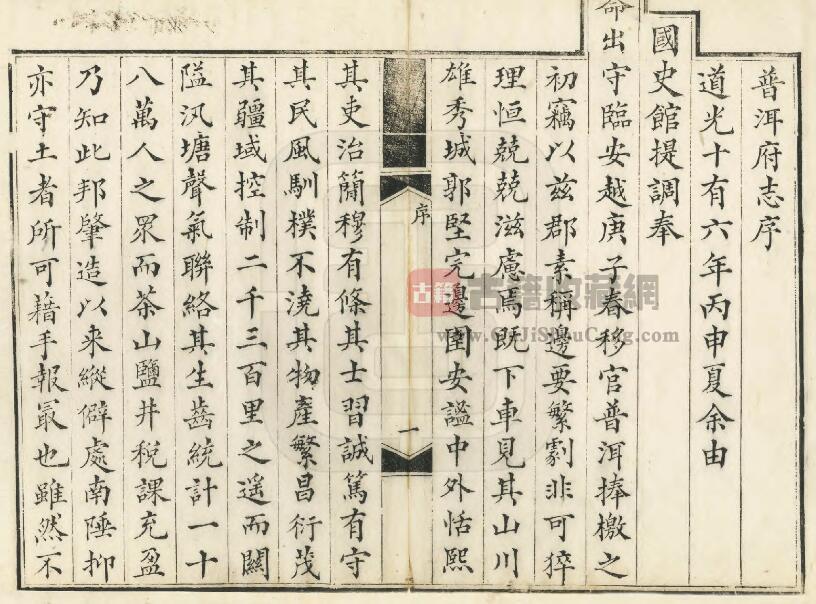 普洱府志序
道光十有六年丙申夏余由
國史館提調奉
命出守臨安越庚子春移官普洱捧檄之
初竊以茲郡素稱邊要繁劇非可猝
理恒兢兢滋慮焉既下車見其山川
雄秀城郭堅完邊圉安謐中外恬熙
序
一
其吏治簡穆有條其士習誠篤有守
其民風馴樸不澆其物產繁昌衍茂
其疆域控制二千三百里之遥而關
隘汛塘聲氣聯絡其生齒統計一十
八萬人之眾而茶山鹽井稅課充盈
乃知此邦肇造以来縱僻處南陲抑
亦守土者所可藉手報最也雖然不
古籍 古籍收藏網
www.GuJiShuCang.com